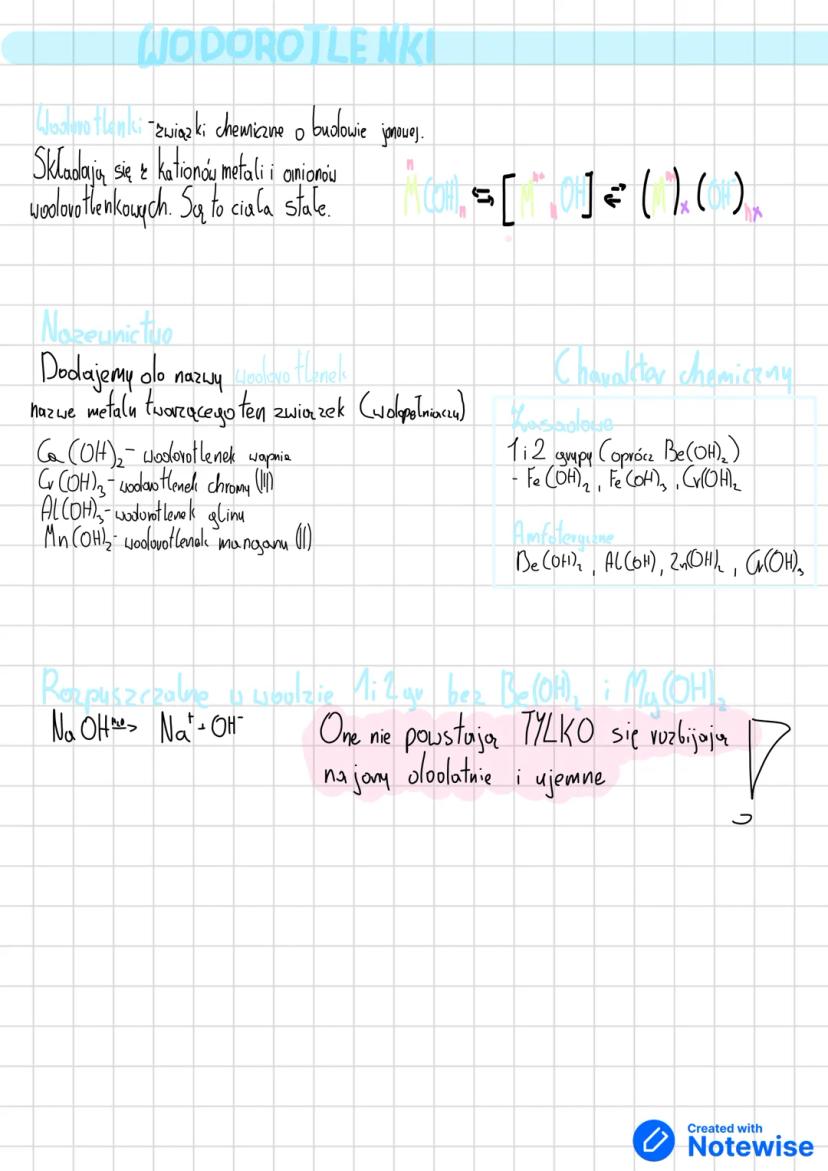 WODOROTLENKI
Wodorotlenki - związki chemiczne o budowie jonowej.
Składają się z kationów metali i anionów
wodorotlenkowych. Są to ciała stałe.
M(OH)n ⇆ [Mⁿ⁺ ₙOH⁻] ⇄ (Mⁿ⁺)ₓ (OH⁻)ₙₓ
Nazewnictwo
Dodajemy do nazwy wodorotlenek
nazwe metalu tworzącego ten związek (w dopełniaczu)
Ca(OH)₂ - wodorotlenek wapnia
Cr(OH)₃ - wodorotlenek chromu (III)
Al(OH)₃ - wodorotlenek glinu
Mn(OH)₂ - wodorotlenek manganu (II)
Charakter chemiczny
Zasadowe
1 i 2 grupy (oprócz Be(OH)₂)
- Fe(OH)₂, Fe(OH)₃, Cr(OH)₂
Amfoteryczne
Be(OH)₂, Al(OH), Zn(OH)₂, Cr(OH)₃
Rozpuszczalne w wodzie 1 i 2 gr bez Be(OH)₂ i Mg(OH)₂
NaOH H₂O→ Na⁺ + OH⁻
One nie powstają TYLKO się rozbijają
na jony dodatnie i ujemne
Created with
Notewise